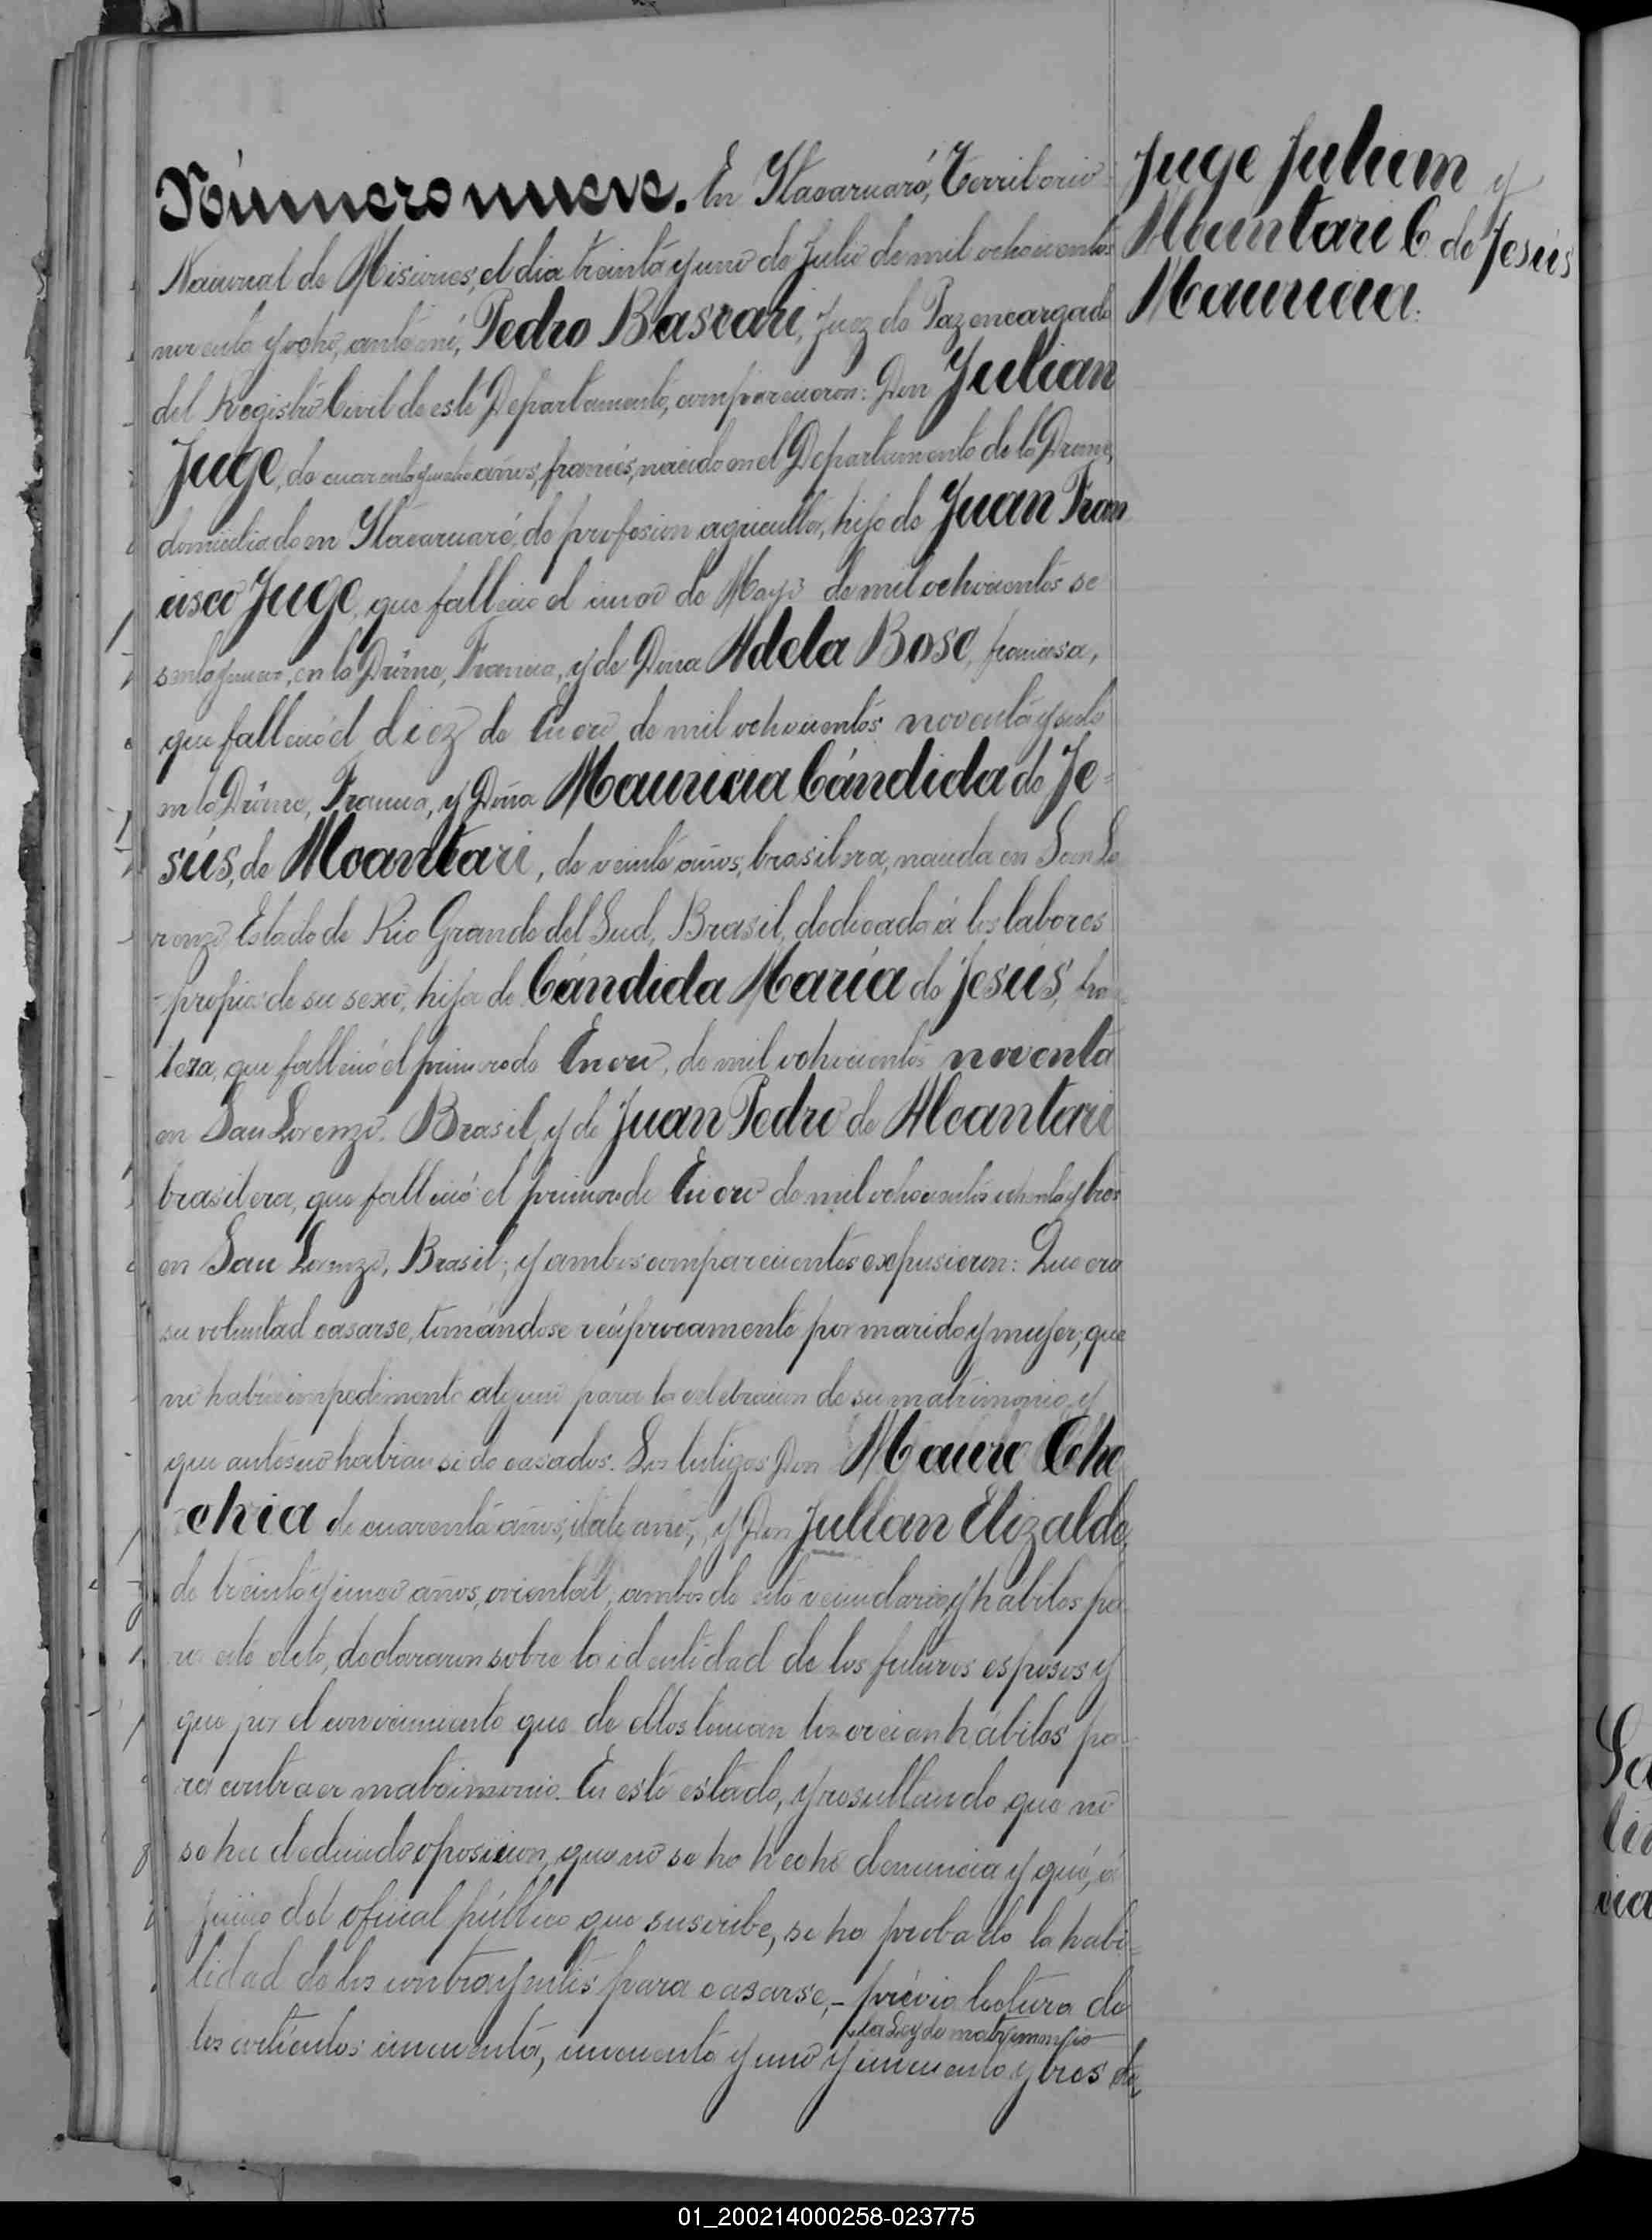 Número nueve. En Itacaruaré, Territorio
Nacional de Misiones, el dia treinta y uno de Julio de mil ochocientos
noventa y ocho, ante mí, Pedro Bascari, Juez de Paz encargado
del Registro Civil de este Departamento, comparecieron: Don Julian
Juge, de cuarenta y años, francés, nacido en el Departamento de la Drome,
domiciliado en Itacaruaré, de profesion agricultor, hijo de Juan Fran
cisco Juge, que falleció el cinco de Mayo de mil ochocientos se
senta y, en la Drôme, Francia, y de Doña Adela Bosc, francesa,
que falleció el diez de Enero de mil ochocientos noventa y
en la Drôme, Francia, y Doña Mauricia Cándida de Je=
sús, de Alcantari, de veinte años, brasilera, nacida en San Lo
renzo, Estado de Rio Grande del Sud, Brasil, dedicada á las labores
propias de su sexo, hija de Cándida María de Jesús, bra
ilera, que falleció el primero de Enero, de mil ochocientos noventa
en San Lorenzo, Brasil, y de Juan Pedro de Alcantari
brasilera, que falleció el primero de Enero de mil ochocientos ochenta y tres
en San Lorenzo, Brasil; y ambos comparecientes expusieron: Que era
su voluntad casarse, tomándose recíprocamente por marido y mujer, que
no habia impedimento alguno para la celebracion de su matrimonio, y
que antes no habian sido casados. Los testigos Don Mauro Cho
chia de cuarenta años, italiano, y Don Jullian Elizalde,
de treinta y cinco años, oriental, ambos de este vecindario y hábiles pa
ra este acto, declararon sobre la identidad de los futuros esposos y
que por el conocimiento que de ellos tenian los creian hábiles pa
ra contraer matrimonio. En este estado, y resultando que no
se ha deducido oposicion, que no se ha hecho denuncia y que, á
juicio del oficial público que suscribe, se ha probado la habi=
lidad de los contrayentes para casarse,- prévia lectura de
la Ley de matrimonio
los artículos cincuenta, cincuenta y uno y cincuenta y tres de
Juge Julian y
Alcantari C. de Jesús
Mauricia.
01_200214000258-023775